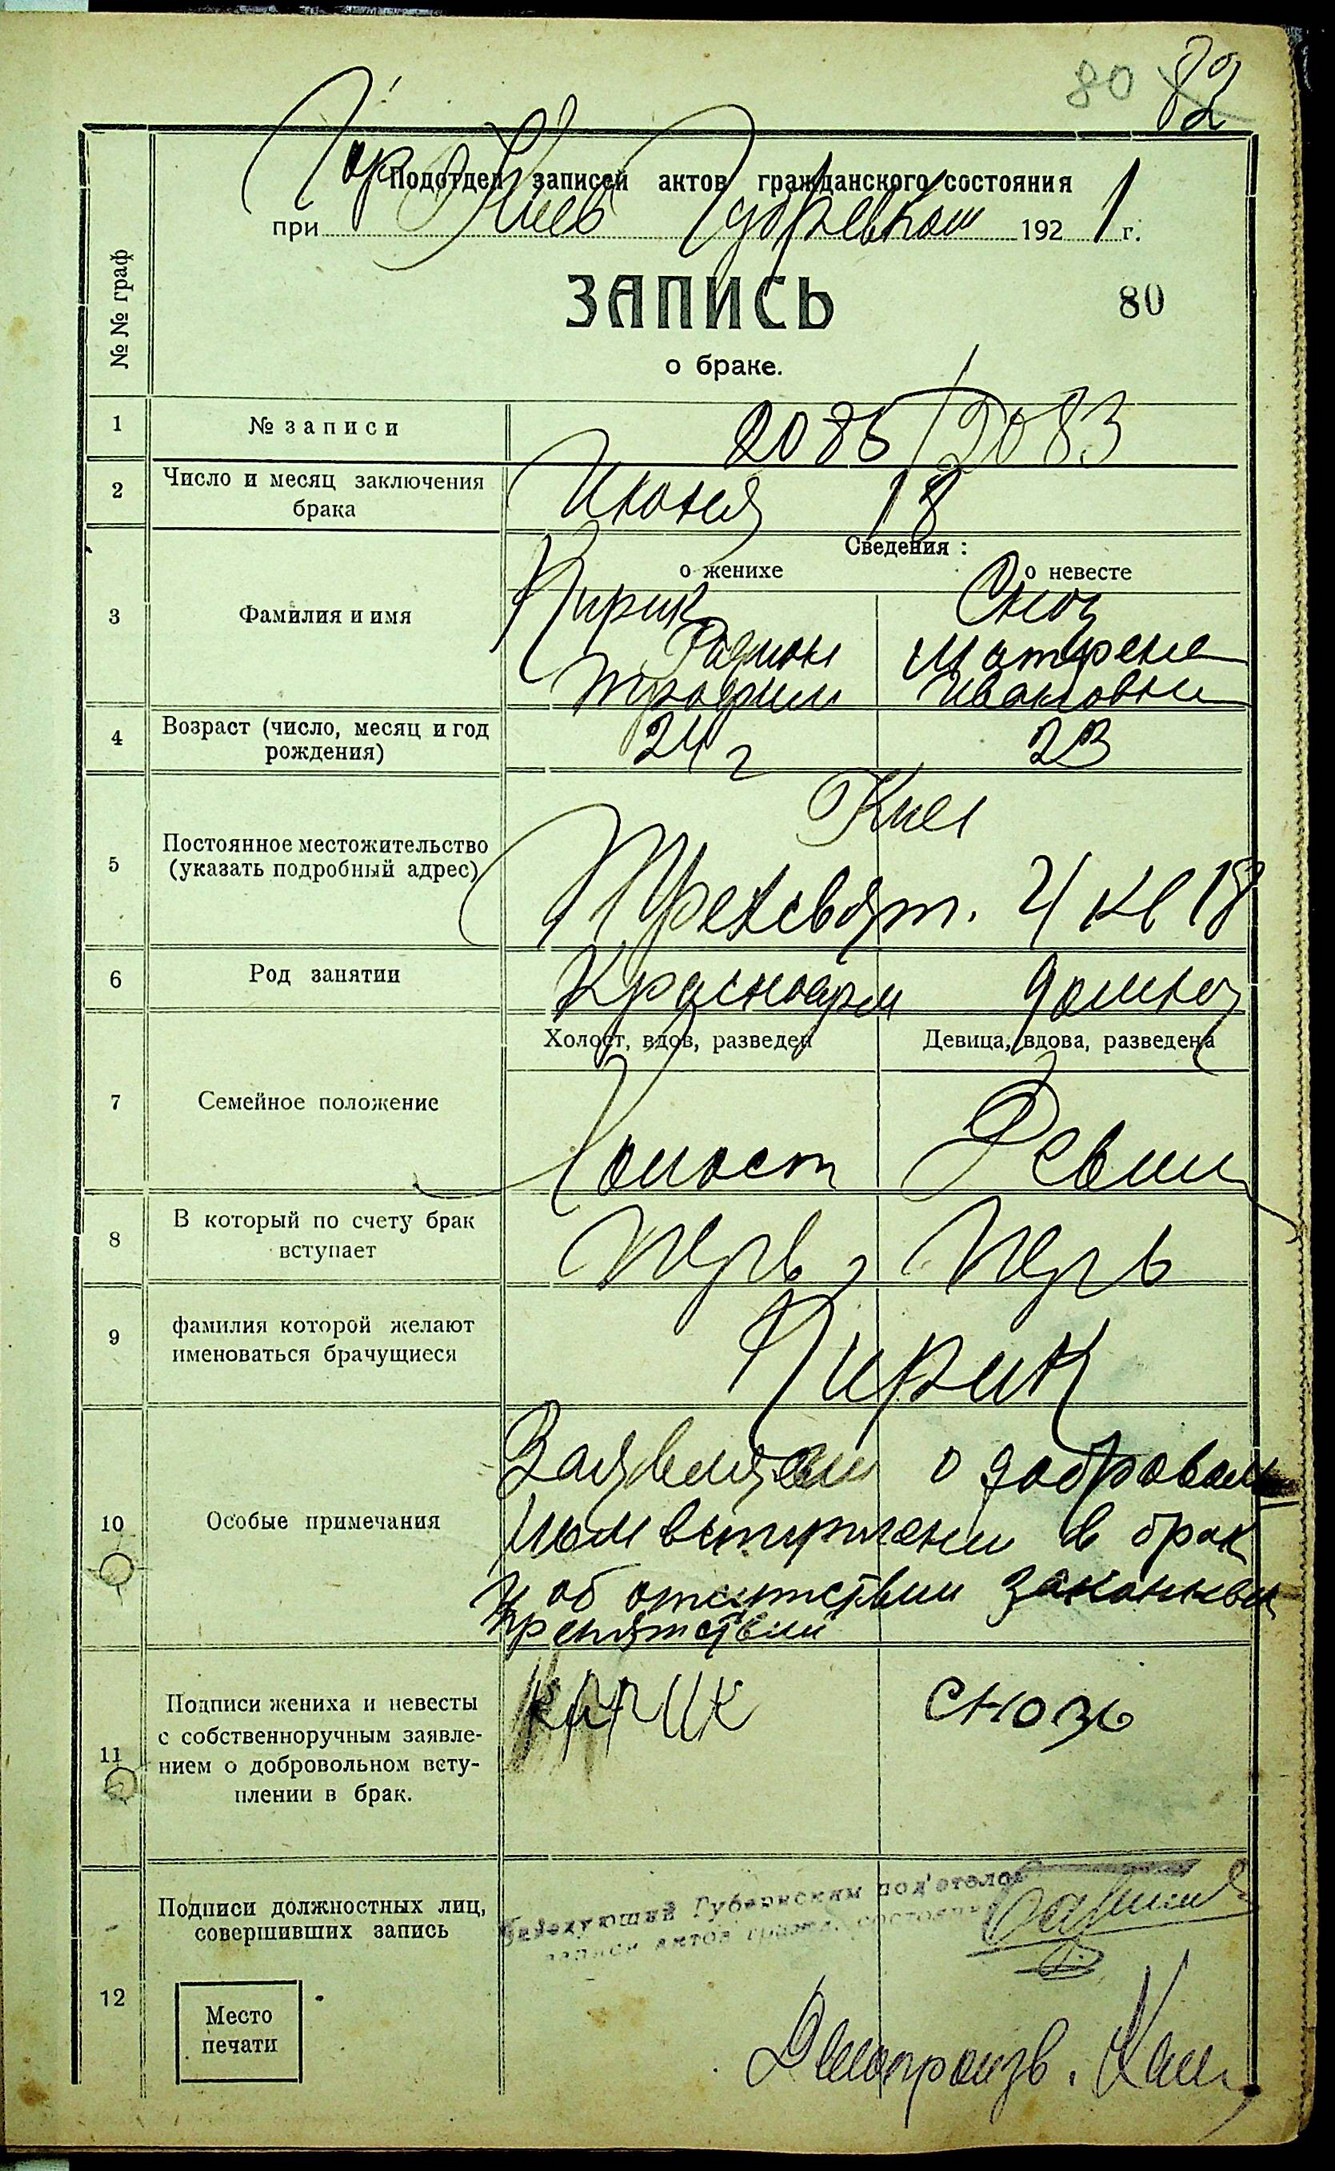 80 82
Гор.
Подотдел записей актов гражданского состояния
при Киев Губревком 1921 г.
№№ граф
ЗАПИСЬ
80
о браке.
1 № записи 2085/2083
2 Число и месяц заключения брака Июня 18
Сведения:
о женихе о невесте
3 Фамилия и имя
Кирик Сноз
Родион Матрена
Трофим Ивановна
4 Возраст (число, месяц и год рождения) 24 г 23
Киев
5 Постоянное местожительство (указать подробный адрес) Трехсвят. 4 кв 18
6 Род занятии Красноарм домаш
Холост, вдов, разведен Девица, вдова, разведена
7 Семейное положение Холост Девиц
8 В который по счету брак вступает перв перв
9 фамилия которой желают именоваться брачущиеся Кирик
10 Особые примечания
Заявляем о доброволь
ном вступлении в брак
и об отсутствии законных
препятствий
11 Подписи жениха и невесты
с собственноручным заявле-
нием о добровольном всту-
плении в брак.
Кирик Снозь
12 Подписи должностных лиц,
совершивших запись
Заведующий Губернским под'отделом
записи актов гражд. состояния
Место
печати
Делопроизв.